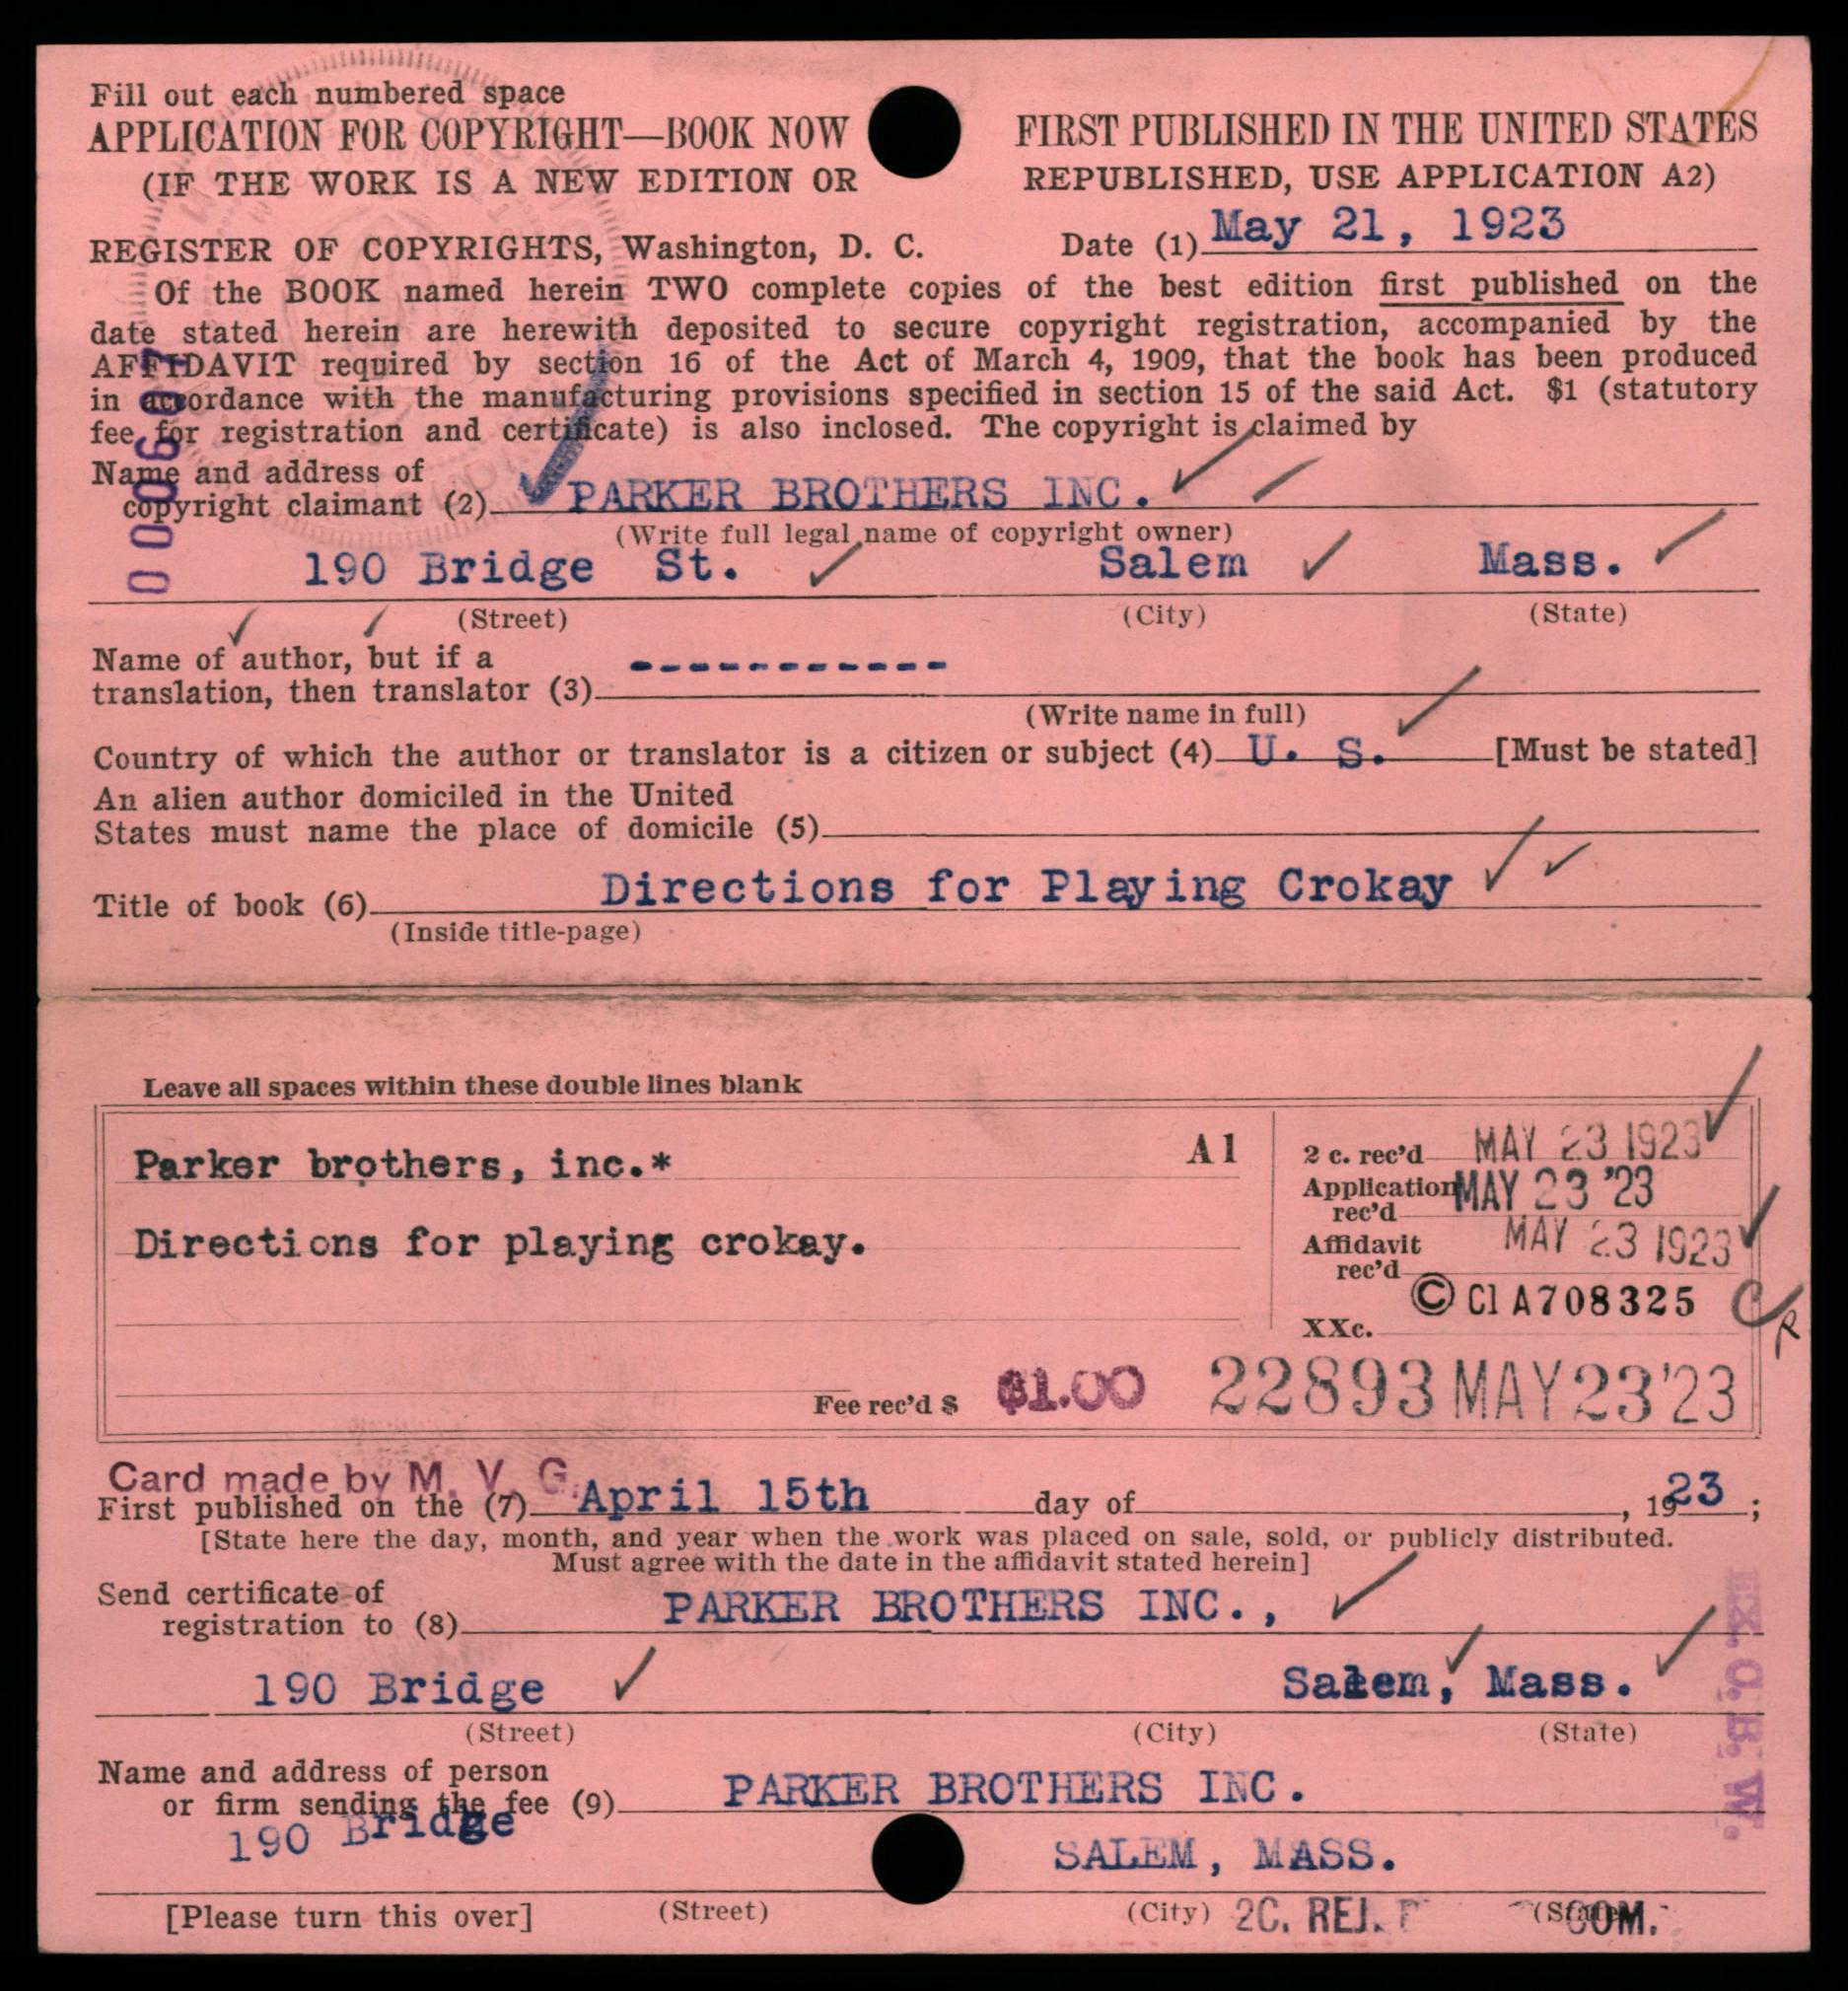 Fill out each numbered space
APPLICATION FOR COPYRIGHT—BOOK NOW FIRST PUBLISHED IN THE UNITED STATES
(IF THE WORK IS A NEW EDITION OR REPUBLISHED, USE APPLICATION A2)
REGISTER OF COPYRIGHTS, Washington, D. C. Date (1) May 21, 1923
Of the BOOK named herein TWO complete copies of the best edition first published on the
date stated herein are herewith deposited to secure copyright registration, accompanied by the
AFFIDAVIT required by section 16 of the Act of March 4, 1909, that the book has been produced
in accordance with the manufacturing provisions specified in section 15 of the said Act. $1 (statutory
fee for registration and certificate) is also inclosed. The copyright is claimed by
Name and address of
copyright claimant (2) PARKER BROTHERS INC.
(Write full legal name of copyright owner)
190 Bridge St. Salem Mass.
(Street) (City) (State)
Name of author, but if a
translation, then translator (3) -----------
(Write name in full)
Country of which the author or translator is a citizen or subject (4) U. S. [Must be stated]
An alien author domiciled in the United
States must name the place of domicile (5)
Title of book (6) Directions for Playing Crokay
(Inside title-page)
Leave all spaces within these double lines blank
Parker brothers, inc.* A1 2 c. rec'd MAY 23 1923
Application rec'd MAY 23 '23
Directions for playing crokay. Affidavit rec'd MAY 23 1923
XXc. © Cl A708325
Fee rec'd $ $1.00 22893 MAY 23 '23
Card made by M. V. G.
First published on the (7) April 15th day of , 1923;
[State here the day, month, and year when the work was placed on sale, sold, or publicly distributed.
Must agree with the date in the affidavit stated herein]
Send certificate of
registration to (8) PARKER BROTHERS INC.,
190 Bridge Salem, Mass.
(Street) (City) (State)
Name and address of person
or firm sending the fee (9) PARKER BROTHERS INC.
190 Bridge SALEM, MASS.
[Please turn this over] (Street) (City) (State)
2C. REJ. COM.
EX. C. B. W.